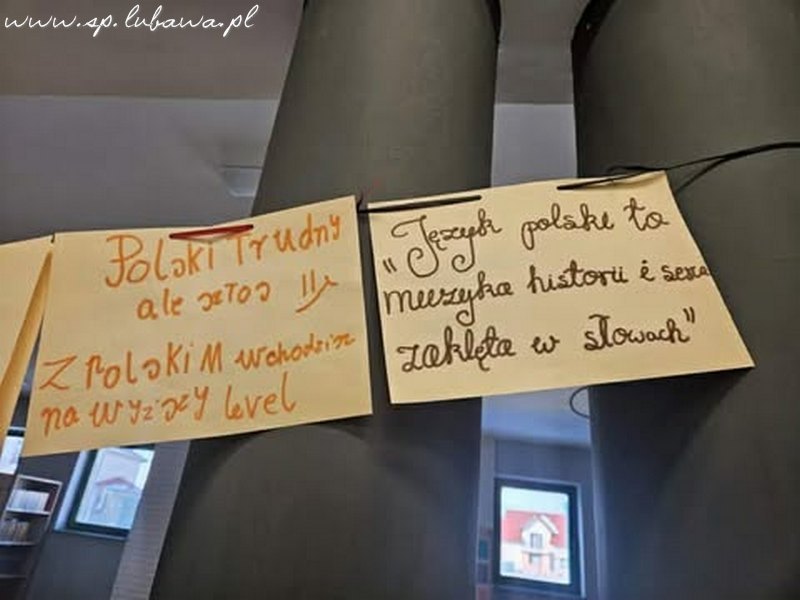 www.sp.lubawa.pl
Polski Trudny
ale
Z Polskim wchodzisz
na wyższy level
"Język polski to
muzyka historii i serca
zaklęta w słowach"